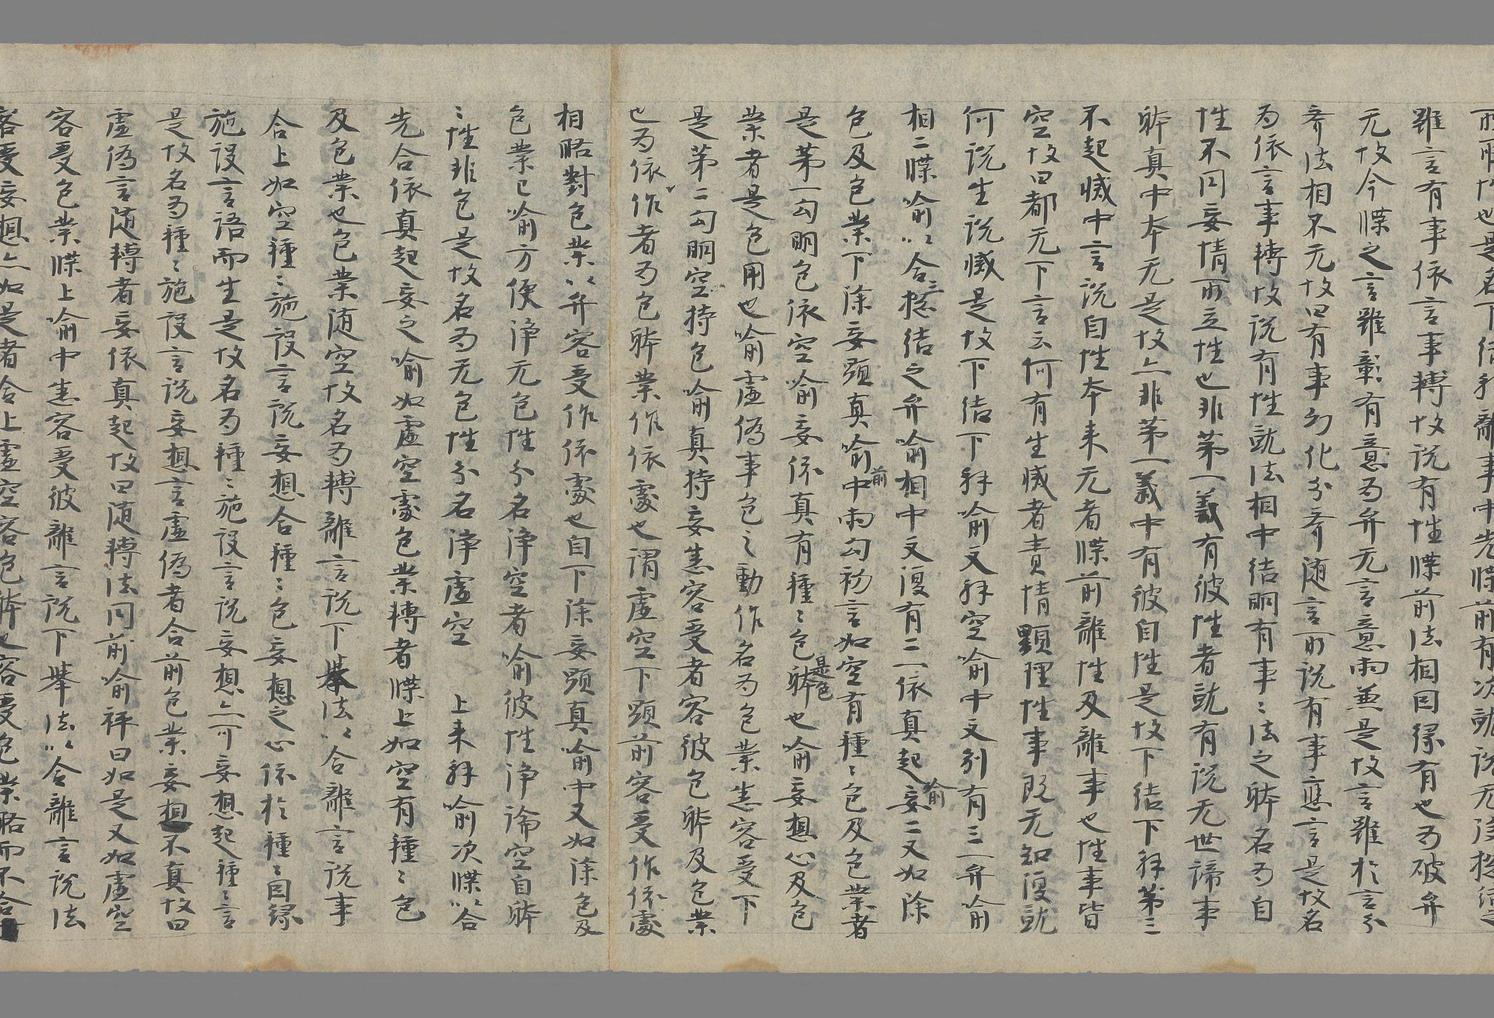 雖言有事依言事轉故說有性牒前法相因緣有也為破弁
无故今牒之言雖彰有意為弁无言意兩兼是故言雖於言分
齊法相不无故曰有事幻化分齊随言而說有事應言是故名
為依言事轉故說有性就法相中結明有事＝法之躰名為自
性不同妄情所立性也非第一義有彼性者就有說无世諦事
躰真中本无是故亦非第一義中有彼自性是故下結下釋第三
不起滅中言說自性本来无者牒前離性及離事也性事皆
空故曰都无下言云何有生滅者責情顯理性事既无知復就
何說生說滅是故下結下釋喻文釋空喻中文別有三一弁喻
相二牒喻＝合三揔結之弁喻相中文復有二一依真起妄喻二又如除
色及色業下除妄顕真喻前中兩句初言如空有種＝色及色業者
是第一句明色依空喻妄依真有種＝色躰是色也喻妄想心及色
業者是色用也喻虛偽事色之動作名為色業悉容受下
是第二句明空持色喻真持妄悉容受者容彼色躰及色業
也為依作者為色躰業作依處也謂虛空下顕前容受作依處
相略對色業＝弁容受作依處也自下除妄顕真喻中又如除色及
色業已喻方便淨无色性分名淨空者喻彼性淨論空自躰
＝性非色是故名為无色性分名淨虛空 上来釋喻次牒＝合
先合依真起妄之喻如虛空處色業轉者牒上如空有種＝色
及色業也色業随空故名為轉離言說下舉法＝合離言說事
合上如空種＝施設言說妄想合種＝色妄想之心依於種＝因緣
施設言語而生是故名為種＝施設言說妄想亦可妄想起種＝言
是故名為種＝施設言說妄想言虛偽者合前色業妄想不真故曰
虛偽言随轉者妄依真起故曰随轉法同前喻秤曰如是又如虛空
容受色業牒上喻中悉容受彼離言說下舉法＝合離言說法
容受妄想亦如是者合上虛空容色躰也容受色業略而不合